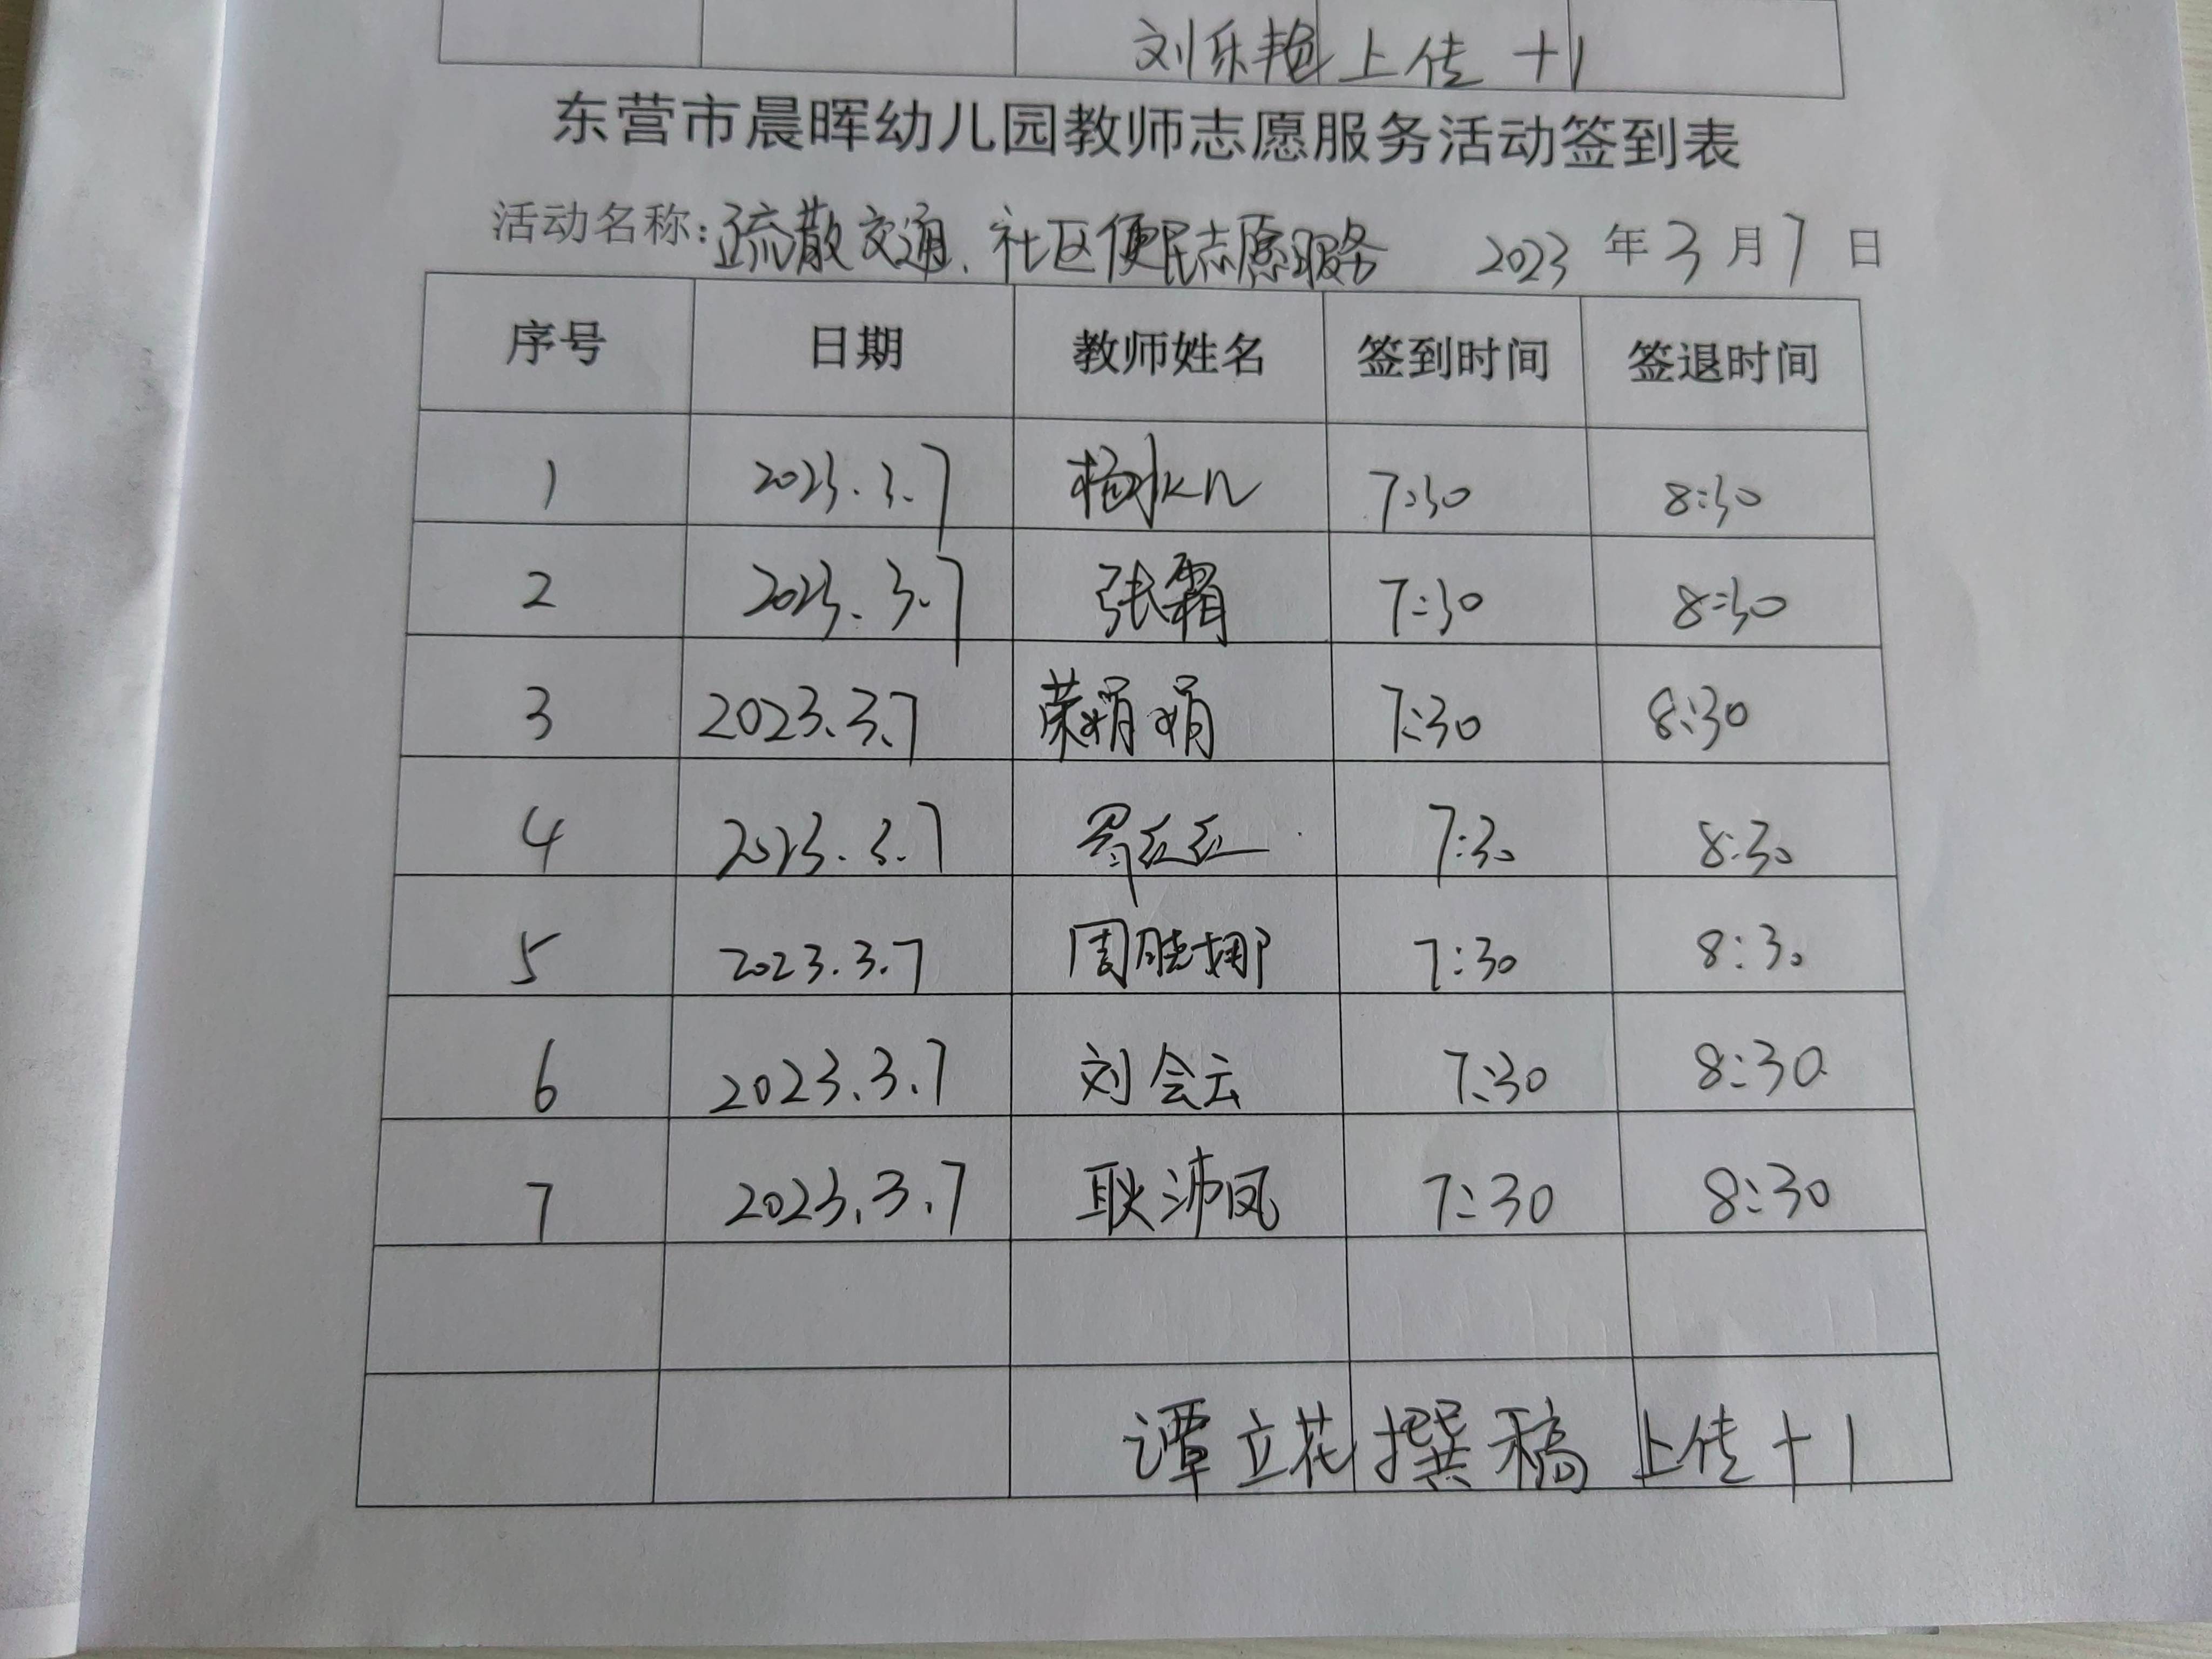 刘乐艳上传 +1
东营市晨晖幼儿园教师志愿服务活动签到表
活动名称:疏散交通、社区便民志愿服务 2023 年 3 月 7 日
序号 日期 教师姓名 签到时间 签退时间
1 2023.3.7 7:30 8:30
2 2023.3.7 张霜 7:30 8:30
3 2023.3.7 荣娟娟 7:30 8:30
4 2023.3.7 红红 7:30 8:30
5 2023.3.7 周胜娜 7:30 8:30
6 2023.3.7 刘会云 7:30 8:30
7 2023.3.7 耿沛凤 7:30 8:30
谭立花撰稿 上传 +1